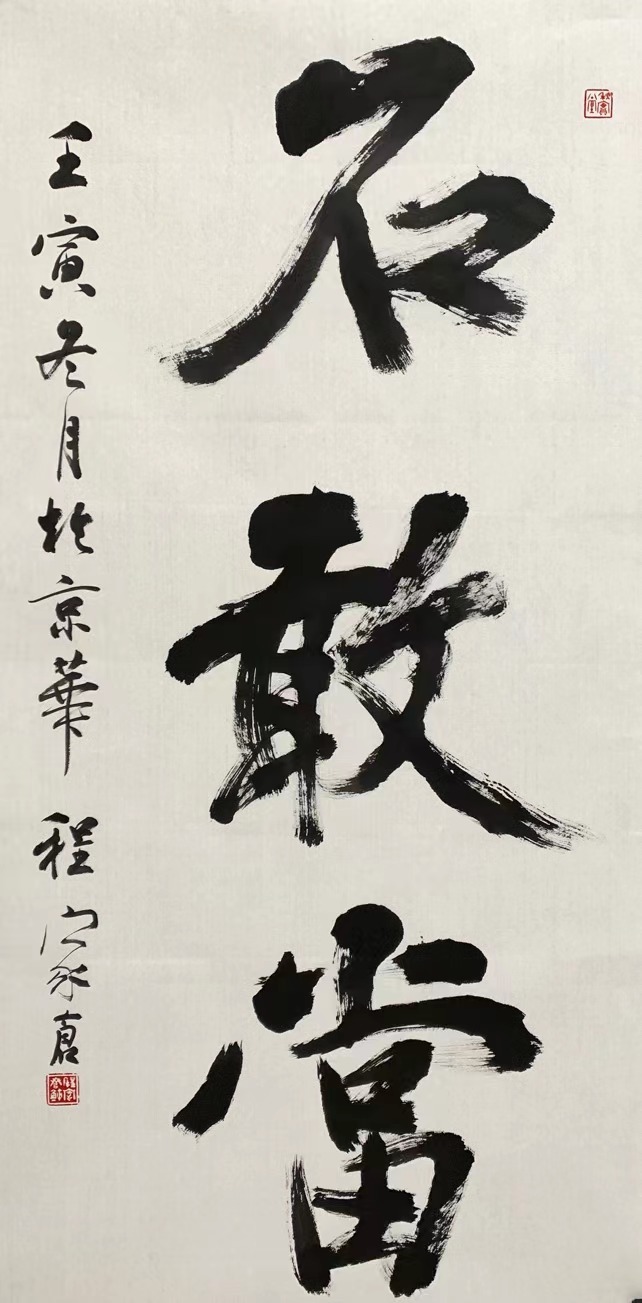 石敢當
壬寅冬月於京華 程